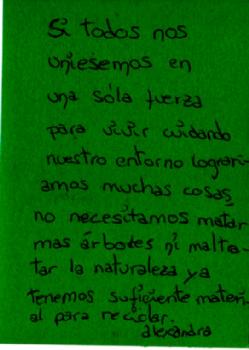 Si todos nos
uniesemos en
una sóla fuerza
para vivir cuidando
nuestro entorno lograri-
amos muchas cosas,
no necesitamos matar
mas árboles ni maltra-
tar la naturaleza ya
tenemos suficiente materi-
al para reciclar.
alexandra